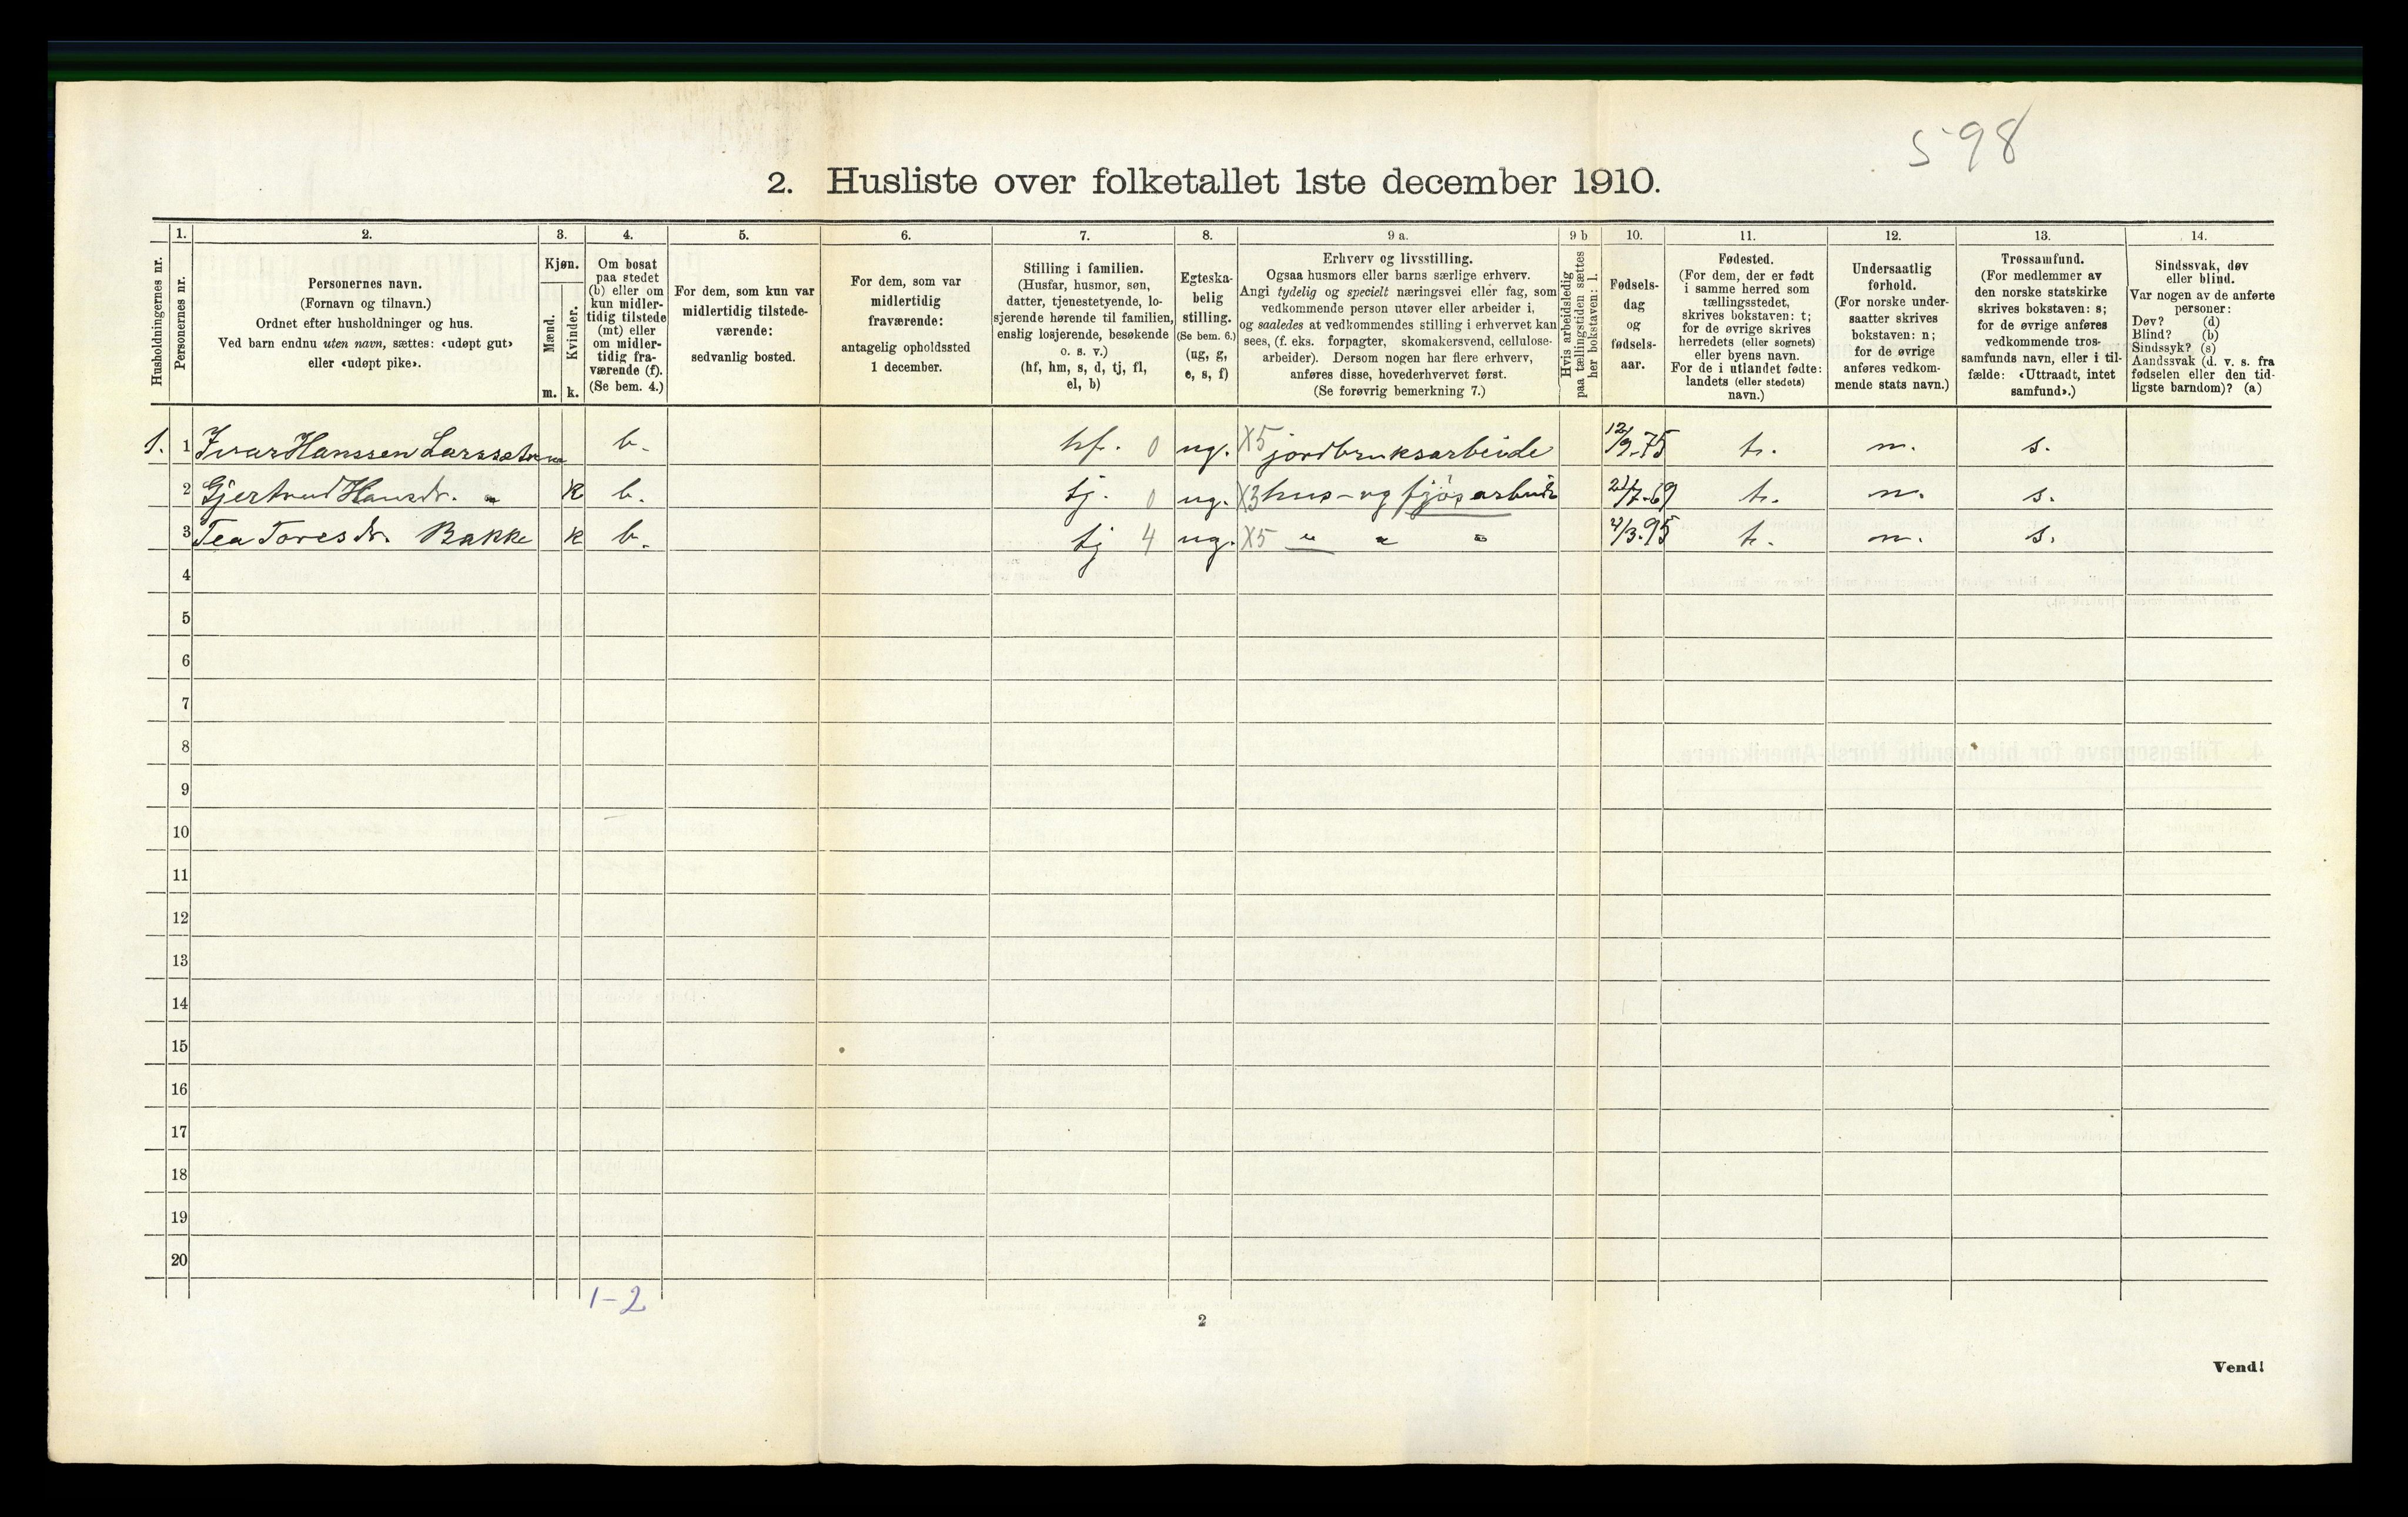 598
2. Husliste over folketallet 1ste december 1910.
Husholdningernes nr.
1.
Personernes nr.
2.
Personernes navn.
(Fornavn og tilnavn.)
Ordnet efter husholdninger og hus.
Ved barn endnu uten navn, sættes: «udøpt gut»
eller «udøpt pike».
3.
Kjøn.
Mænd.
Kvinder.
m. k.
4.
Om bosat
paa stedet
(b) eller om
kun midler-
tidig tilstede
(mt) eller
om midler-
tidig fra-
værende (f).
(Se bem. 4.)
5.
For dem, som kun var
midlertidig tilstede-
værende:
sedvanlig bosted.
6.
For dem, som var
midlertidig
fraværende:
antagelig opholdssted
1 december.
7.
Stilling i familien.
(Husfar, husmor, søn,
datter, tjenestetyende, lo-
sjerende hørende til familien,
enslig losjerende, besøkende
o. s. v.)
(hf, hm, s, d, tj, fl,
el, b)
8.
Egteska-
belig
stilling.
(Se bem. 6.)
(ug, g,
e, s, f)
9 a.
Erhverv og livsstilling.
Ogsaa husmors eller barns særlige erhverv.
Angi tydelig og specielt næringsvei eller fag, som
vedkommende person utøver eller arbeider i,
og saaledes at vedkommendes stilling i erhvervet kan
sees, (f. eks. forpagter, skomakersvend, cellulose-
arbeider). Dersom nogen har flere erhverv,
anføres disse, hovederhvervet først.
(Se forøvrig bemerkning 7.)
9 b
Hvis arbeidsledig
paa tællingstiden sættes
her bokstaven: l.
10.
Fødsels-
dag
og
fødsels-
aar.
11.
Fødested.
(For dem, der er født
i samme herred som
tællingsstedet,
skrives bokstaven: t;
for de øvrige skrives
herredets (eller sognets)
eller byens navn.
For de i utlandet fødte:
landets (eller stedets)
navn.)
12.
Undersaatlig
forhold.
(For norske under-
saatter skrives
bokstaven: n;
for de øvrige
anføres vedkom-
mende stats navn.)
13.
Trossamfund.
(For medlemmer av
den norske statskirke
skrives bokstaven: s;
for de øvrige anføres
vedkommende tros-
samfunds navn, eller i til-
fælde: «Uttraadt, intet
samfund».)
14.
Sindssvak, døv
eller blind.
Var nogen av de anførte
personer:
Døv? (d)
Blind? (b)
Sindssyk? (s)
Aandssvak (d. v. s. fra
fødselen eller den tid-
ligste barndom)? (a)
1. 1 Ivar Hanssen b. hf. 0 ug. X5 jordbruksarbeide 12/9-75 t. n. s.
2 Gjertrud Hansdr. " k b. tj. 0 ug. X3 hus- og fjösarbeide 21/7-69 t. n. s.
3 Tea Toresdr. Bakke k b. tj 4 ug. X5 " " " /3.95 t. n. s.
4
5
6
7
8
9
10
11
12
13
14
15
16
17
18
19
20
1-2
2
Vend!